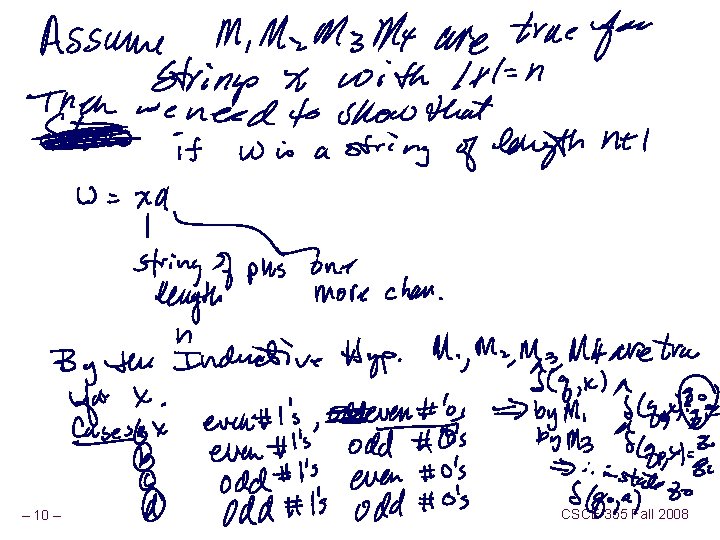 Assume M1 M2 M3 M4 are true for
strings x with |x|=n
Then we need to show that
if w is a string of length n+1
w = xa
string of plus one
length more char.
n
By the Inductive Hyp. M1, M2, M3, M4 are true
for x.
Cases x even # 1's, even # 0's ⇒ by M1
b even # 1's odd # 0's by M3
c odd # 1's even # 0's ⇒ in state q0
d odd # 1's odd # 0's δ(q0,a)
– 10 –
CSCE 355 Fall 2008